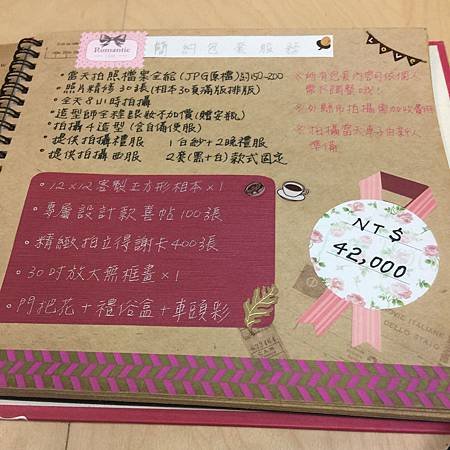 Romantic
簡約包套服務
LOVE
•當天拍照檔案全給(JPG原檔)約150-200
•照片精修30張(相本30頁滿版排版)
•全天8小時拍攝
•造型師全程跟妝不加價(贈安瓶)
•拍攝4造型(含自備便服)
•提供拍攝禮服 1白紗+2晚禮服
•提供拍攝西服 2套(黑+白)款式固定
※所有包套內容可依個人需求調整哦!
※外縣市拍攝需加收費用
※拍攝當天車子由新人準備
•12×12客製正方形相本×1
•專屬設計款喜帖100張
•精緻拍立得謝卡400張
•30吋放大無框畫×1
•門把花+禮俗盒+車頭彩
NT$
42,000